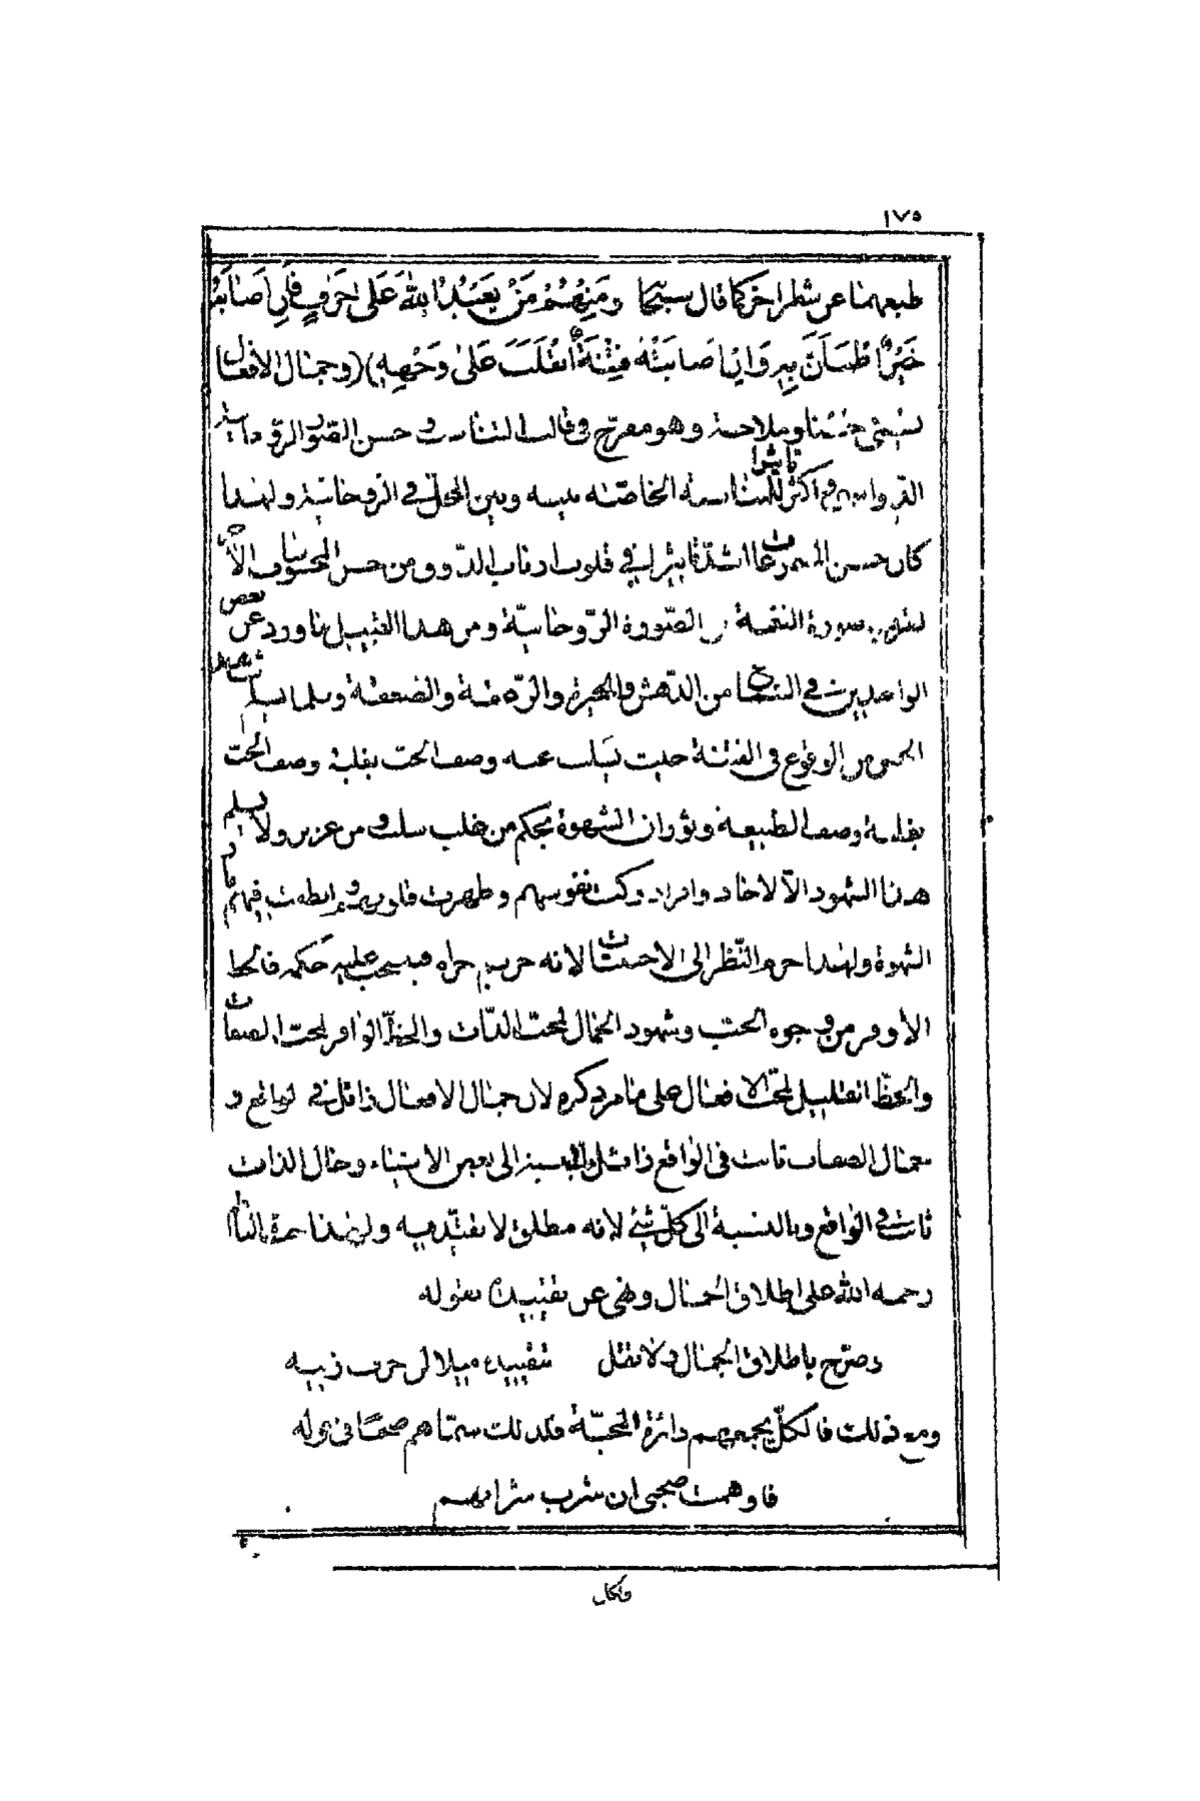 ١٧٥
طبعهما عن شطر اخر كما قال سبحانه وَمِنْهُمْ مَنْ يَعْبُدُ اللهَ عَلى حَرْفٍ فَاِنْ اَصَابَهُ
خَيْرٌ اطْمَاَنَّ بِهِ وَاِنْ اَصَابَتْهُ فِتْنَةٌ انْقَلَبَ عَلى وَجْهِهِ) (وجمال الافعال
يسمى حسنا وملاحة وهو مفرّغ في قالب التناسب و حسن الصور الروحانية
اكثر تاثيرا للمناسبة الخاصة بينه وبين المحل في الروحانية ولهذا
كان حسن المسموعات اشدّ تاثيرا في قلوب ارباب الذوق من حسن المحسوسات الأخر
صورة النغمة من الصورة الرّوحانيّة ومن هذا القبيل ما ورد عن بعض
الواجدين في السماع من الدهش والحيرة والزعقة والصعقة وقلما يسلم
من الوقوع في الفتنة حيث يسلب عنه وصف الحب بغلبة وصف الحب
بغلبة وصف الطبيعة وثوران الشهوة بحكم من غلب سلب و من عزيز ولا يسلم
هذا الشهود الّا لاحاد وافراد زكت نفوسهم وطهرت قلوبهم وانطفت فيهم نار
الشهوة ولهذا حرم النّظر الى الاجنبيات لانه حريم حرام فيسحب عليه حكمه فالحظ
الأوفر من وجوه الحبّ وشهود الجمال لمحبّ الذّات والحظّ الوافر لمحبّ الصفات
والحظّ القليل لمحبّ الافعال على ما مرّ ذكره لان جمال الافعال زائل في الواقع و
جمال الصفات ثابت في الواقع زائل بالنسبة الى بعض الاشياء وجمال الذات
ثابت في الواقع وبالنسبة الى كلّ شئ لانه مطلق لا تقيّد فيه ولهذا حثّ الناظم
رحمه الله على اطلاق الجمال ونهى عن تقييده بقوله
وصرّح باطلاق الجمال ولا تقل بتقييده ميلا لزخرف زينة
ومع ذلك فالكلّ يجمعهم دائرة المحبّة فلذلك سمّاهم صحبًا في قوله
فاوهمت صحبي ان شرب شرابهم
والكل